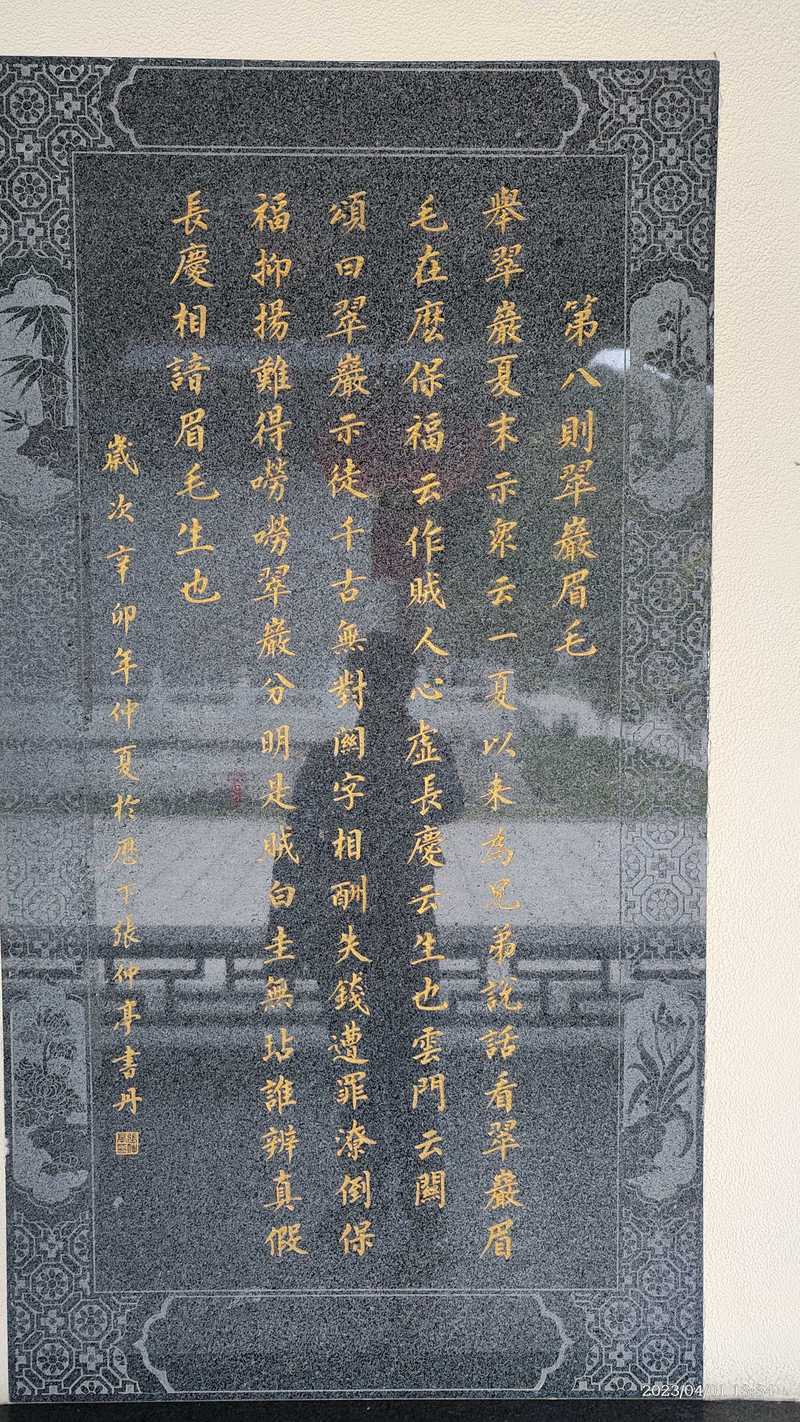 第八則翠巖眉毛
舉翠巖夏末示眾云一夏以来為兄弟説話看翠巖眉
毛在麽保福云作賊人心虛長慶云生也雲門云關
頌曰翠巖示徒千古無對關字相酬失錢遭罪潦倒保
福抑揚難得嘮嘮翠巖分明是賊白圭無玷誰辨真假
長慶相諳眉毛生也
歲次辛卯年仲夏於歷下張仲亭書丹
2023/04/01